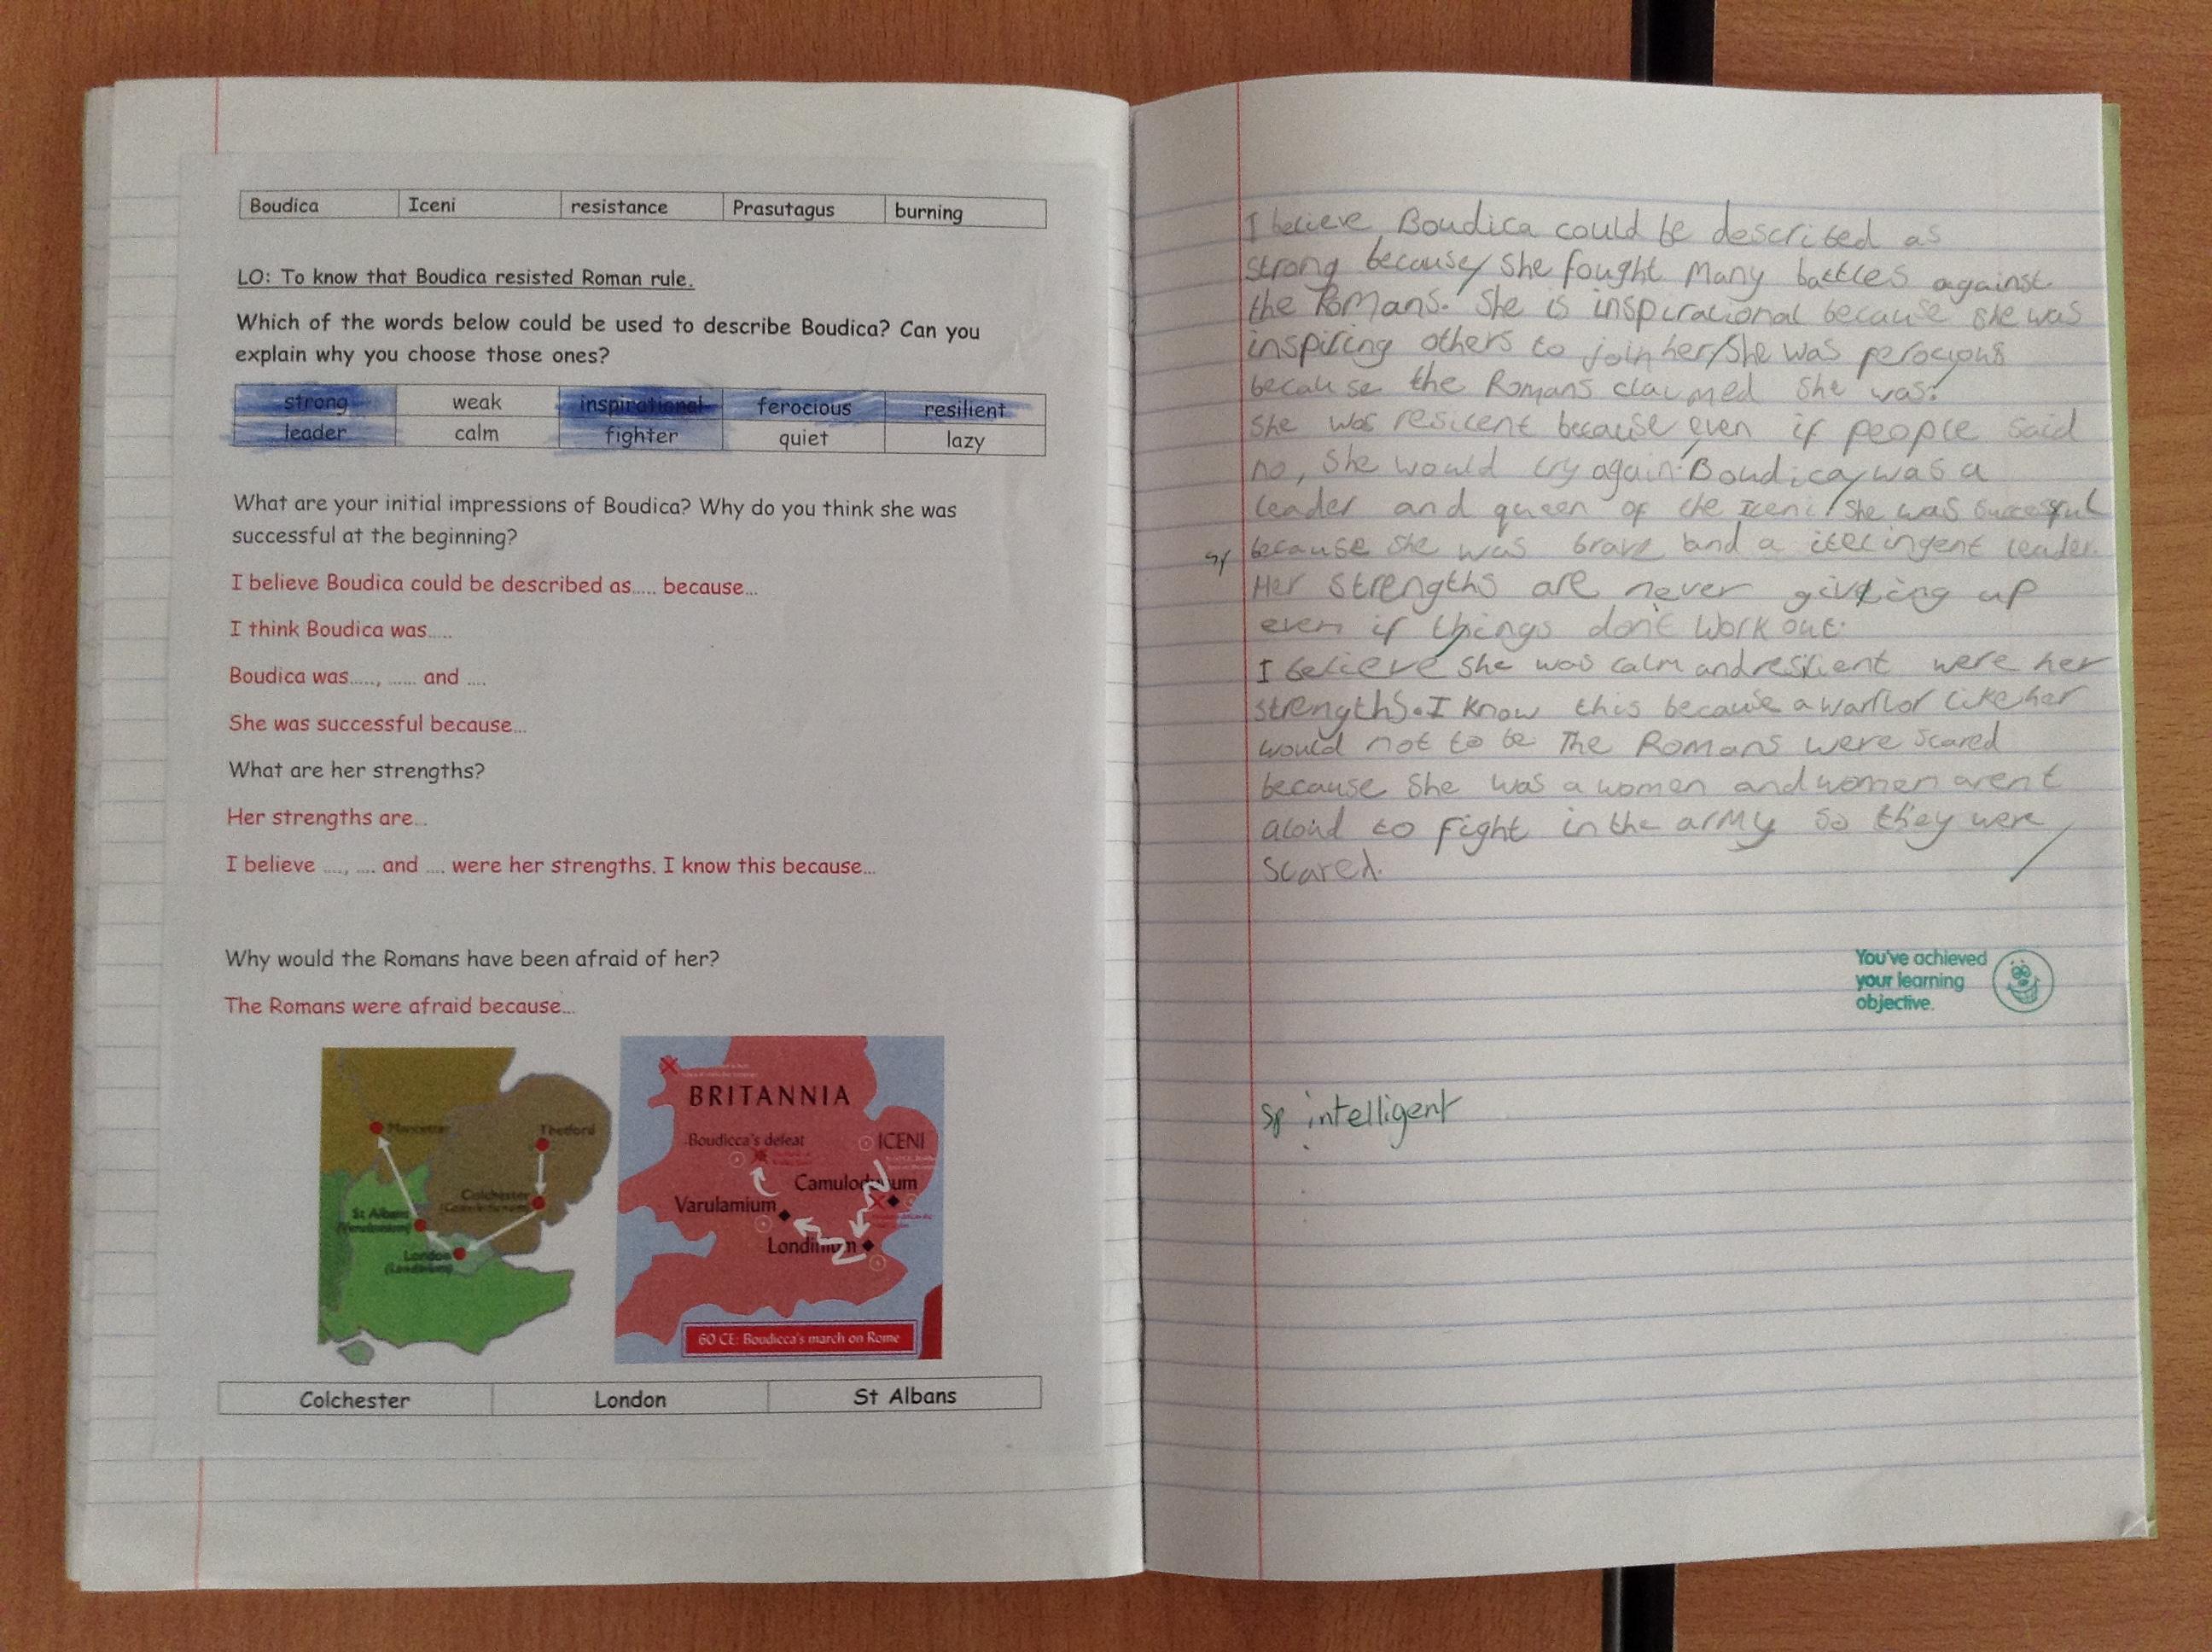 Boudica Iceni resistance Prasutagus burning
LO: To know that Boudica resisted Roman rule.
Which of the words below could be used to describe Boudica? Can you
explain why you choose those ones?
strong weak inspirational ferocious resilient
leader calm fighter quiet lazy
What are your initial impressions of Boudica? Why do you think she was
successful at the beginning?
I believe Boudica could be described as..... because...
I think Boudica was.....
Boudica was....., ...... and ....
She was successful because...
What are her strengths?
Her strengths are...
I believe ...., .... and .... were her strengths. I know this because...
Why would the Romans have been afraid of her?
The Romans were afraid because...
Mancetter
Thetford
Colchester
(Camulodunum)
St Albans
(Verulamium)
London
(Londinium)
BRITANNIA
Boudicca's defeat
ICENI
Camulodunum
Varulamium
Londinium
60 CE: Boudicca's march on Rome
Colchester London St Albans
I believe Boudica could be described as
strong because she fought many battles against
the Romans. She is inspirational because she was
inspiring others to join her she was perocious
because the Romans claimed she was.
She was resilent because even if people said
no, she would try again. Boudica was a
leader and queen of the Iceni she was successful
sp because she was brave and a itelingent leader.
Her strengths are never giving up
even if things don't work out.
I believe she was calm and resilient were her
strengths. I know this because a warrior like her
would not to be The Romans were scared
because she was a women and women arent
aloud to fight in the army so they were
scared.
You've achieved
your learning
objective.
sp intelligent